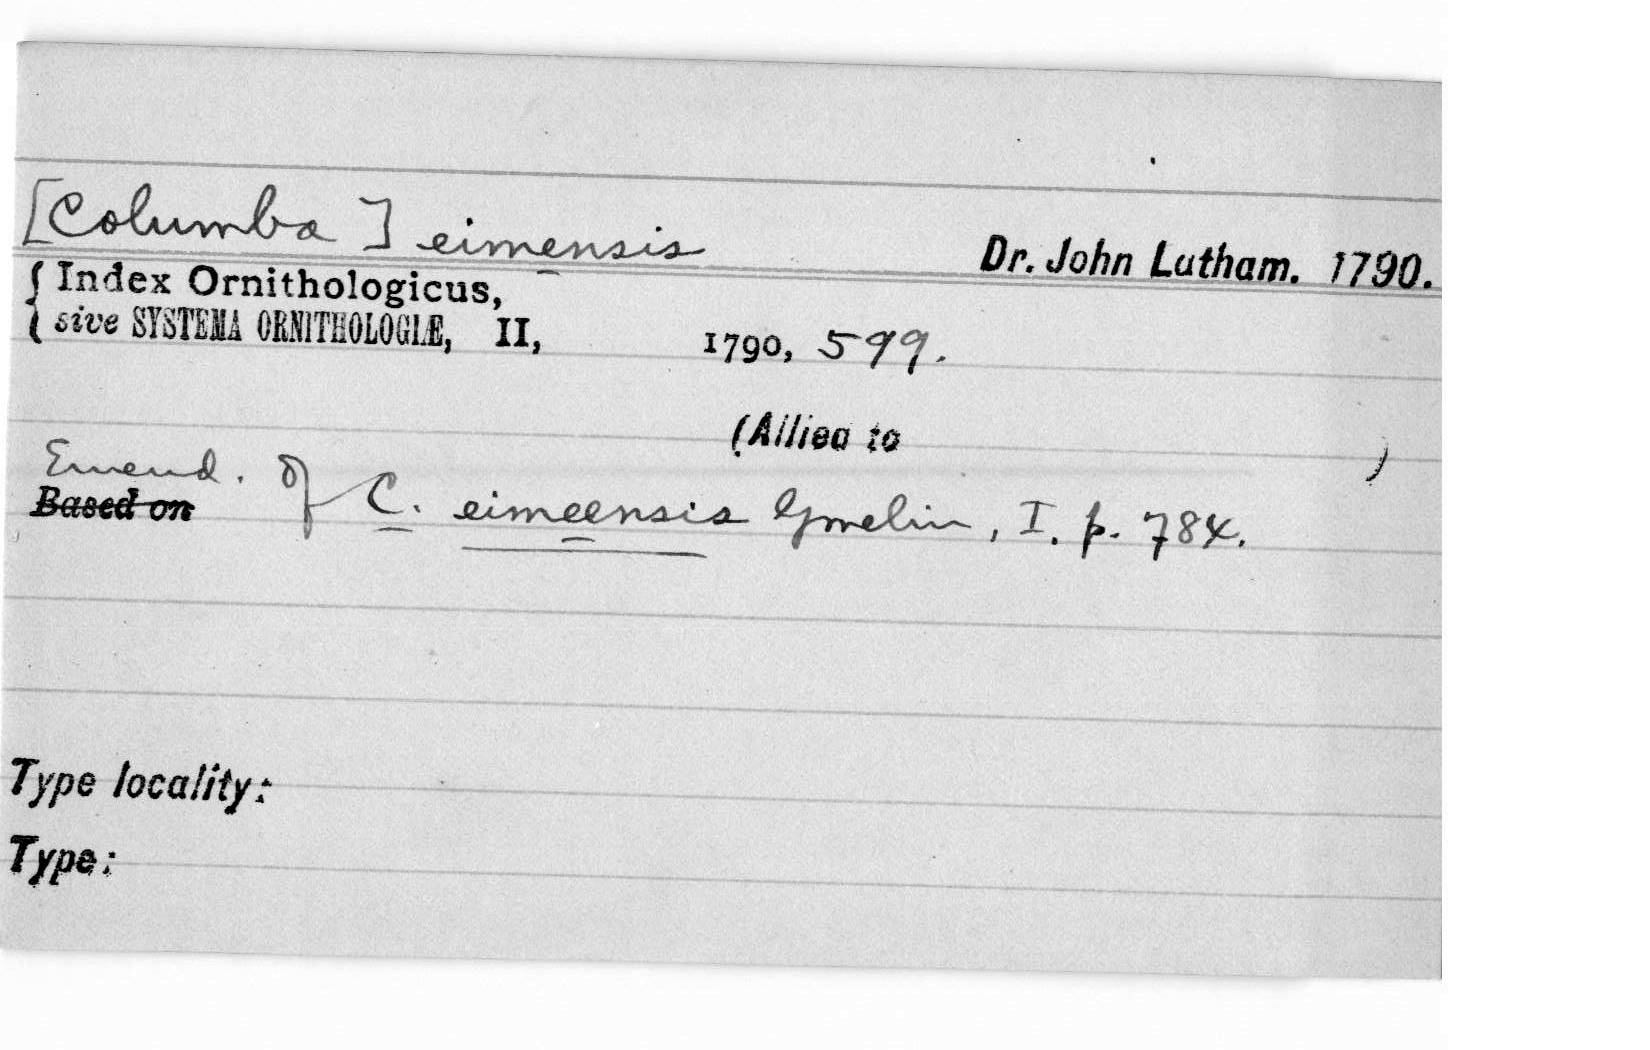 [Columba] eimensis Dr. John Latham. 1790.
Index Ornithologicus,
sive SYSTEMA ORNITHOLOGIÆ, II, 1790, 599.
(Allied to )
Emend. of C. eimeensis Gmelin, I. p. 784.
Based on
Type locality:
Type: